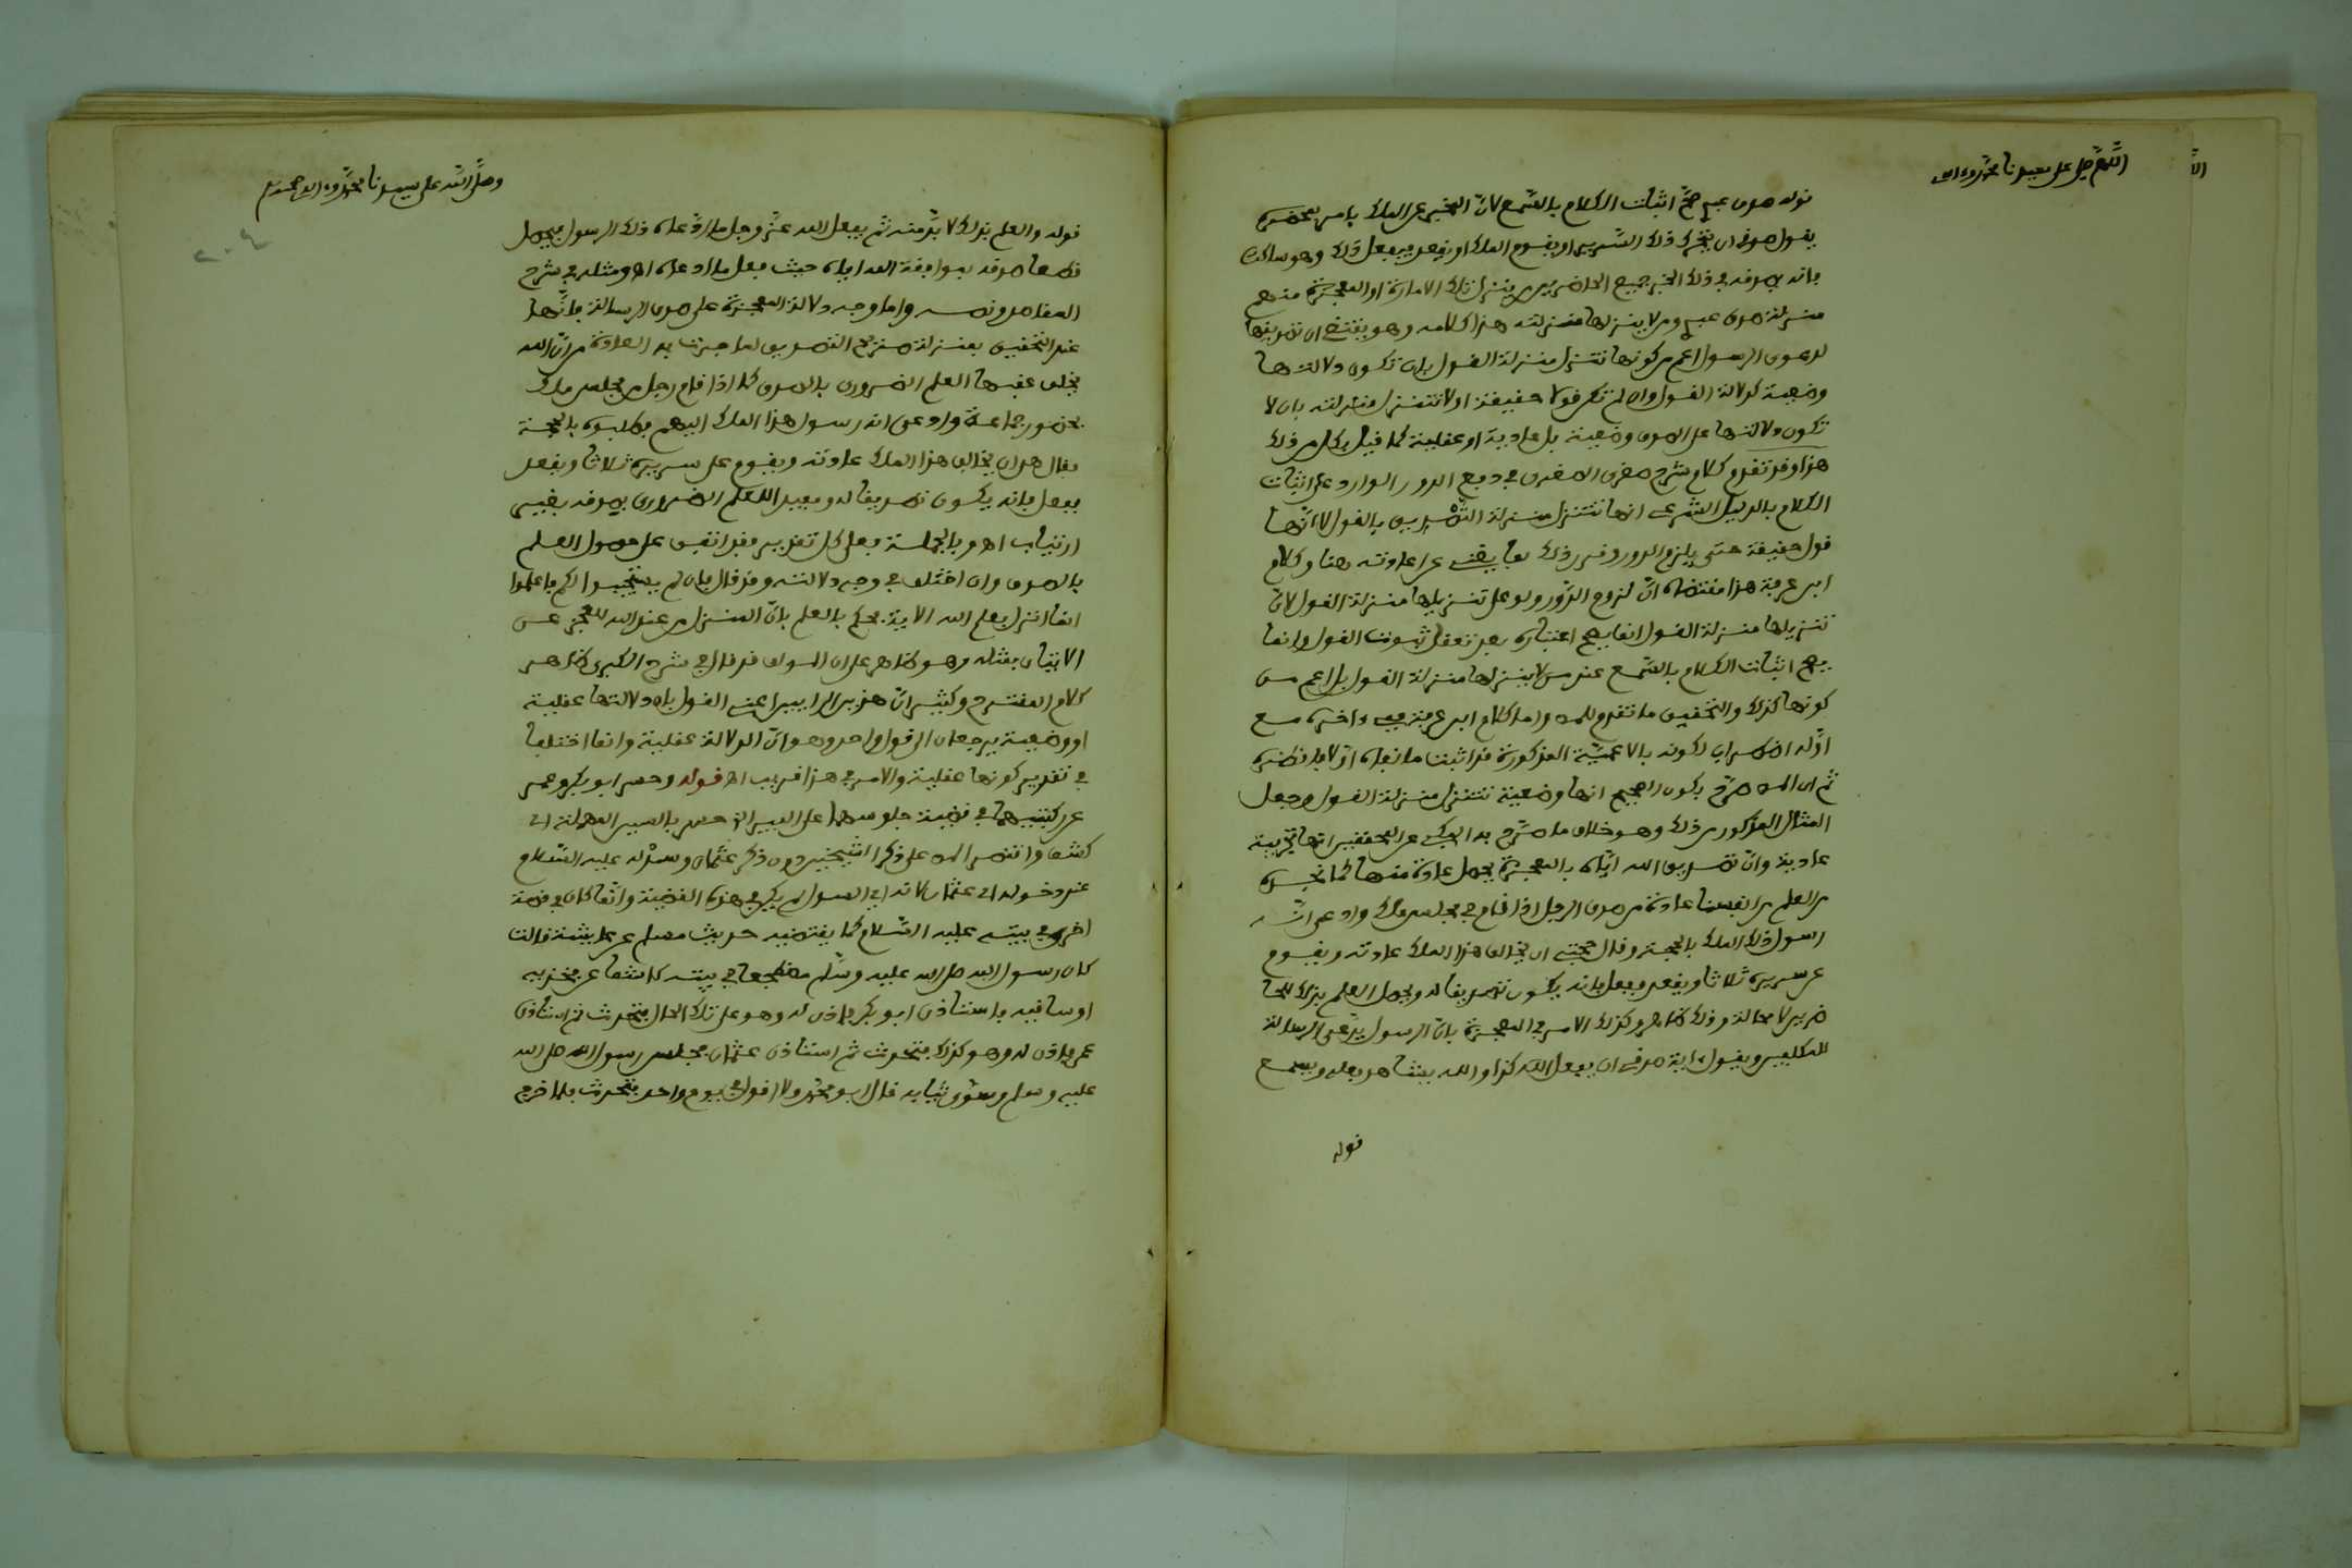 اللهم صل على سيدنا محمد وءاله
قوله صدق عبدي صح اثبات الكلام بالسمع لان المخبر عن الملك بامر بمحضره
يقول صدقي ان يتحرك ذلك السرير او يقوم الملك او يقعد فيفعل ذلك وهو ساكت
فانه يصدقه في ذلك الخبر جميع الحاضرين من ينزل تلك الامارة او المعجزة منهم
منزلة صدق عبدي ومن لا ينزلها منزلته هذا كلامه وهو يقتضي ان تصديقها
لدعوى الرسول اعم من كونها تتنزل منزلة القول بان تكون دلالتها
وضعية كدلالة القول وان لم تكن قولا حقيقة او لا تتنزل منزلته بان لا
تكون دلالتها على الصدق وضعية بل عادية او عقلية كما قيل بكل من ذلك
هذا وقد تقدم كلام شرح صغرى الصغرى في دفع الدور الوارد على اثبات
الكلام بالدليل الشرعي انها تتنزل منزلة التصديق بالقول لا انها
قول حقيقة حتى يلزم الدور وقرر ذلك بما يغني عن اعادته هنا وكلام
ابن عرفة هذا مقتضاه ان لزوم الدور ولو على تنزيلها منزلة القول لان
تنزيلها منزلة القول انما يصح اعتباره بعد تعقل ثبوت القول وانما
يصح اثبات الكلام بالسمع عند من لا ينزلها منزلة القول بل اعم من
كونها كذلك والتحقيق ما تقدم للمص واما كلام ابن عرفة ففيه داخره مع
اوله اضطراب لكونه بالاعمية المذكورة قد اثبت ما نفاه اولا فانظره
ثم ان المص صرح بكون الصحيح انها وضعية تتنزل منزلة القول وجعل
المثال المذكور من ذلك وهو خلاف ما صرح به ابن عن المحققين انها تجريبية
عادية وان تصديق الله اياه بالمعجزة يحصل عادة منها كما نجده
من العلم من انفسنا عادة من صدق الرجل اذا قام في مجلس ملك وادعى انه
رسول ذلك الملك بالحجة وقال حجتي ان يخالف هذا الملك عادته ويقوم
عن سريره ثلاثا ويقعد ففعل فانه يكون تصديقا له ويحصل العلم بذلك للحا
ضرين لا محالة وذلك ظاهر وكذلك الامر في المعجزة بان الرسول يدعي الرسالة
للمكلفين ويقول ءاية صدقي ان يفعل الله كذا والله يشاهد فعله ويسمع
قوله
وصلى الله على سيدنا محمد وءاله وصحبه
٢٠٤
قوله والعلم بذلك لا بد منه ثم يفعل الله عز وجل ما ادعاه ذلك الرسول فيحصل
قطعا صدقه بموافقة الله اياه حيث فعل ما ادعاه اه ومثله في شرح
المقاصد ونصه واما وجه دلالة المعجزة على صدق الرسالة فانها
عند التحقيق بمنزلة صريح التصديق لما جرت به العادة من ان الله
يخلق عقبها العلم الضروري بالصدق كما اذا قام رجل من مجلس ملك
بحضور جماعة وادعى انه رسول هذا الملك اليهم فطلبوه بالحجة
فقال هي ان يخالف هذا الملك عادته ويقوم على سريره ثلاثا ويقعد
ففعل فانه يكون تصديقا له ومفيدا للعلم الضروري بصدقه بغير
ارتياب اه وبالجملة فعلى كل تقدير فقد اتفق على حصول العلم
بالصدق وان اختلف في وجه دلالته وقد قال فان لم يستجيبوا لكم فاعلموا
انما انزل بعلم الله الاية فحكم بالعلم بان المنزل من عند الله للعجز عن
الاتيان بمثله وهو ظاهر على ان المولف قد قال في شرح الكبرى ظاهر
كلام المقترح وكثير ان هذين الرايين اعني القول بان دلالتها عقلية
او وضعية يرجعان الى قول واحد وهو ان الدلالة عقلية وانما اختلفا
في تقدير كونها عقلية والامر في هذا قريب اه قوله وحسر ابو بكر وعمر
عن ركبتيهما في قضية جلوسهما على البير الخ حسر بالسين المهملة اي
كشف واقتصر المص على ذكر الشيخين دون ذكر عثمان وستره عليه السلام
عند دخوله اي عثمان لانه اي الستر لم يكن في هذه القضية وانما كان في قصة
اخرى في بيته عليه السلام كما يقتضيه حديث مسلم عن عايشة قالت
كان رسول الله صلى الله عليه وسلم مضطجعا في بيته كاشفا عن فخذيه
او ساقيه فاستاذن ابو بكر فاذن له وهو على تلك الحال فتحدث ثم استاذن
عمر فاذن له وهو كذلك فتحدث ثم استاذن عثمان فجلس رسول الله صلى الله
عليه وسلم وسوى ثيابه قال ابو محمد ولا اقول في يوم واحد فتحدث فلما خرج